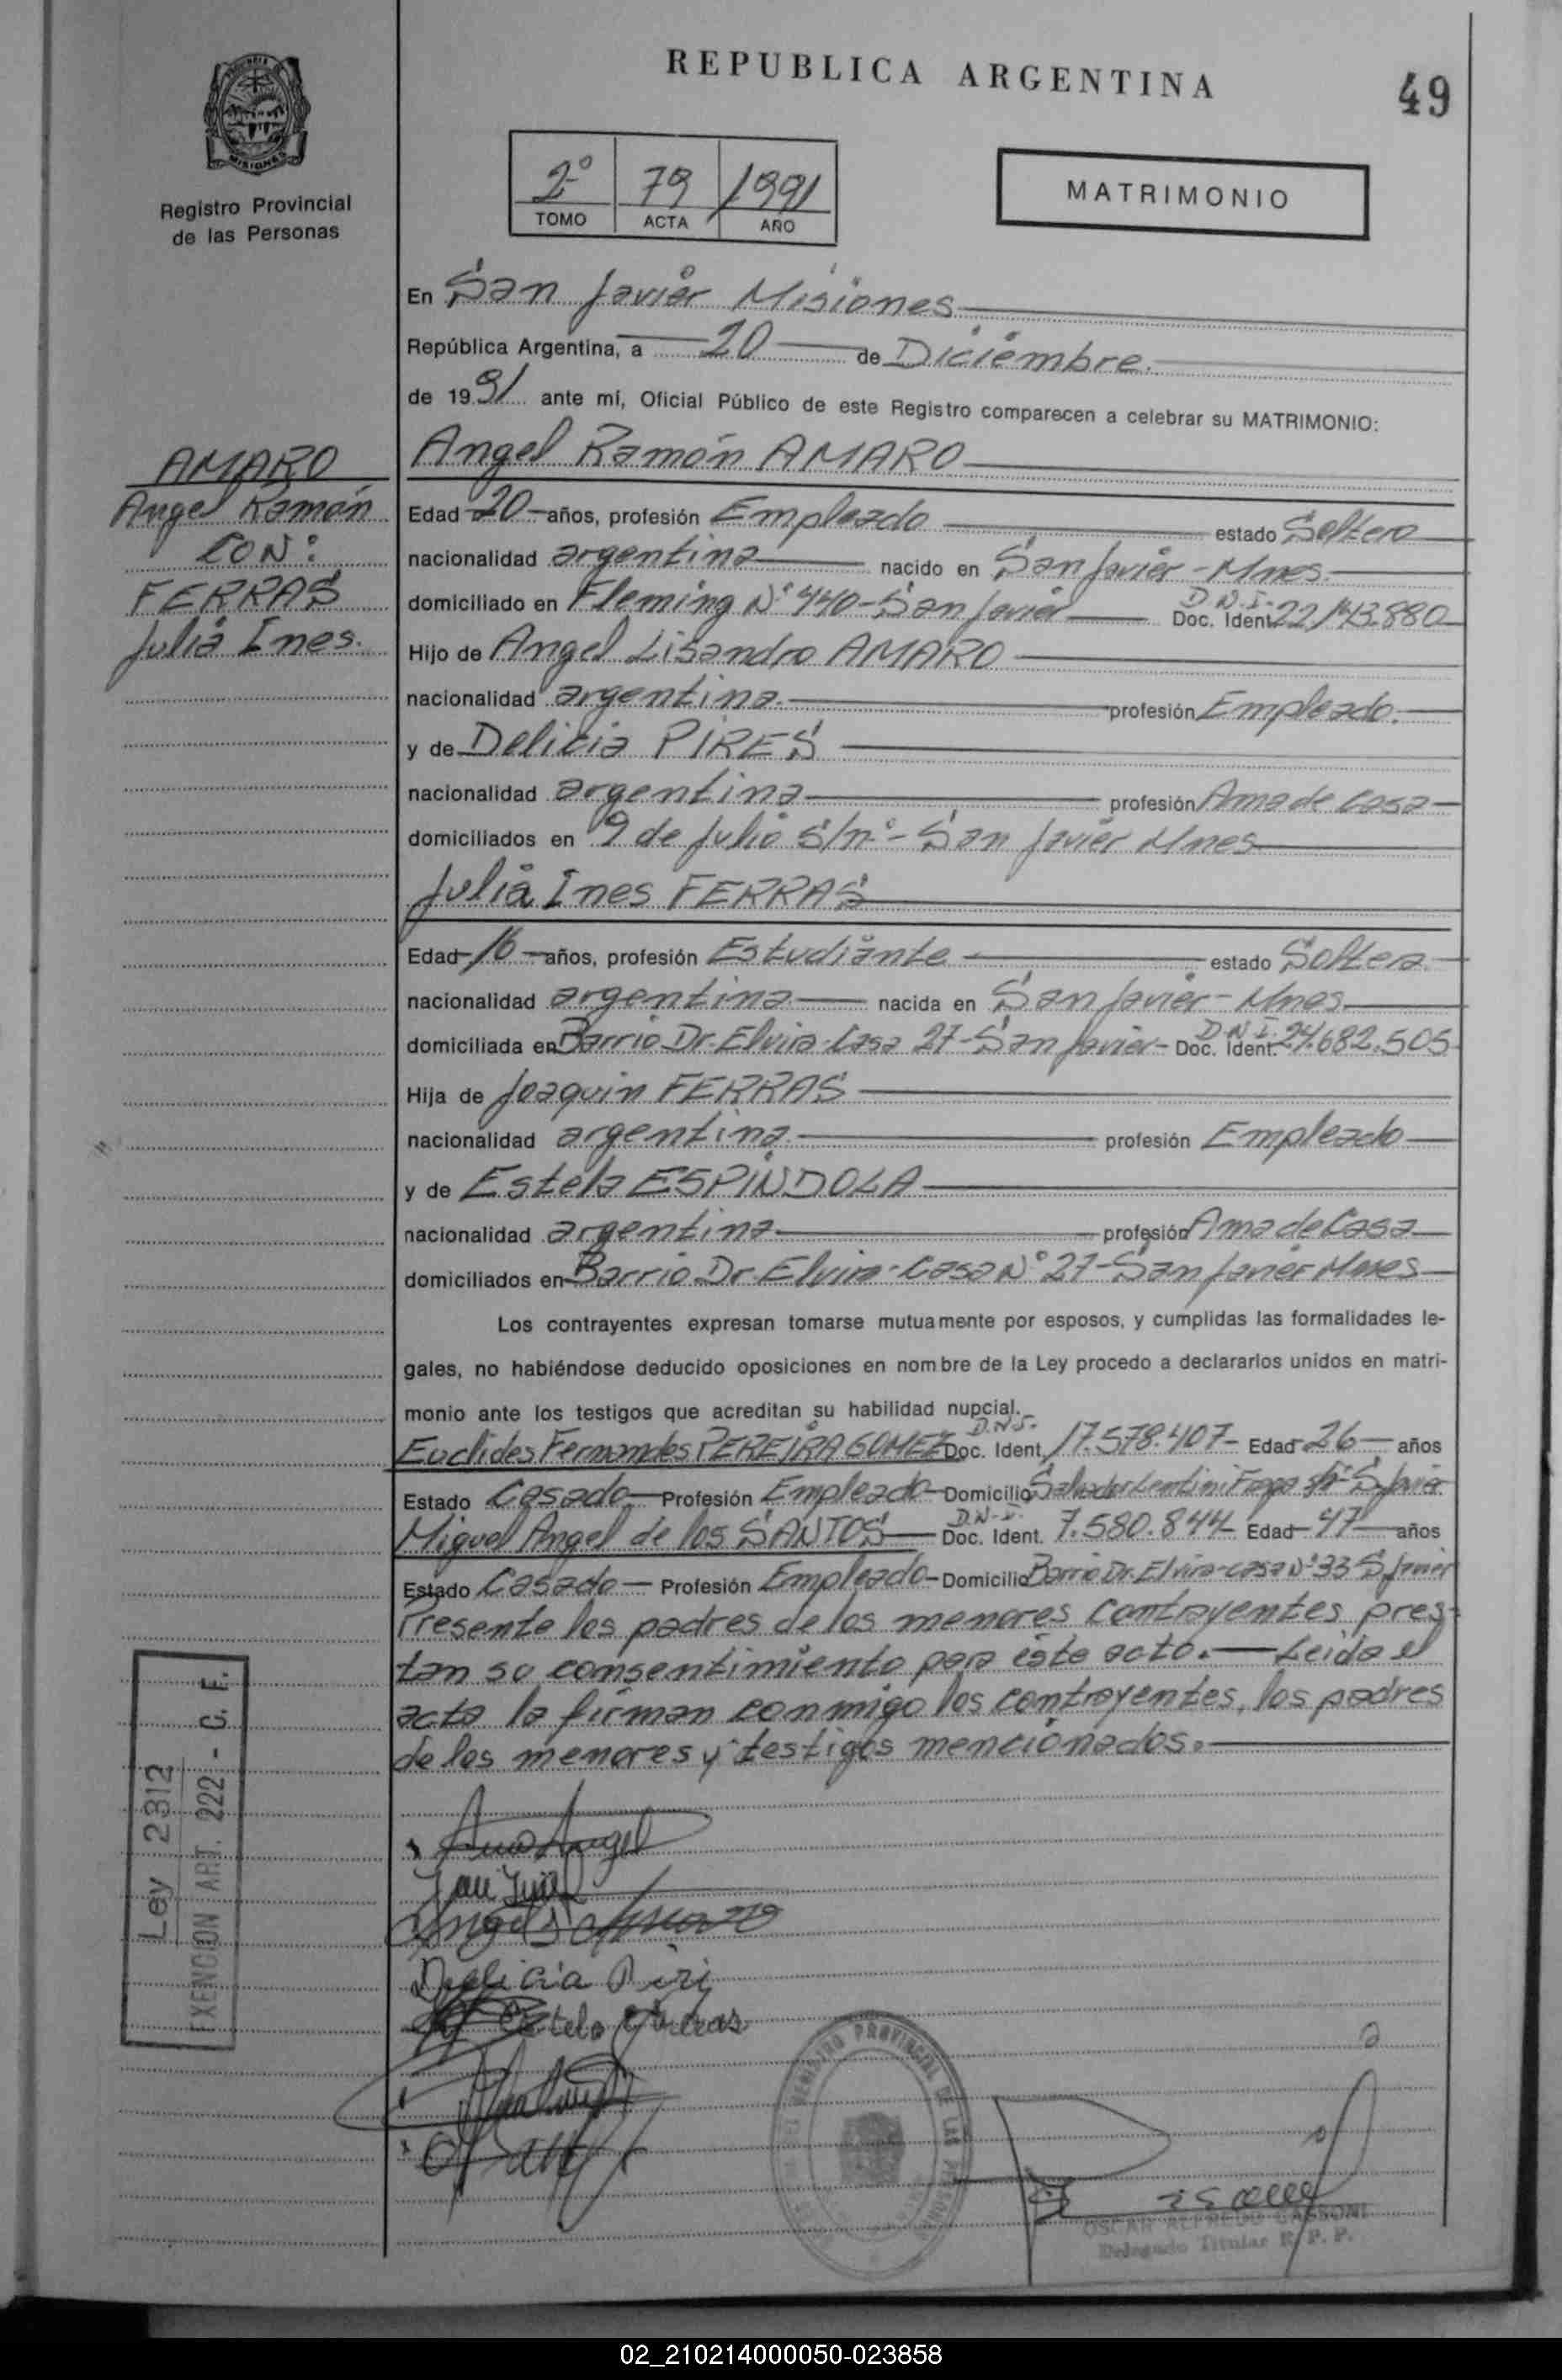 REPUBLICA ARGENTINA
49
PROVINCIA DE MISIONES
Registro Provincial
de las Personas
2º 79 1991
TOMO ACTA AÑO
MATRIMONIO
En San Javier Misiones
República Argentina, a 20 de Diciembre.
de 1991 ante mí, Oficial Público de este Registro comparecen a celebrar su MATRIMONIO:
AMARO
Angel Ramón
CON:
FERRAS
Julia Ines.
Angel Ramón AMARO
Edad 20 años, profesión Empleado estado Soltero
nacionalidad argentina nacido en San Javier - Mnes.
domiciliado en Fleming Nº 440 - San Javier D.N.I. Doc. Ident. 22.143.880
Hijo de Angel Lisandro AMARO
nacionalidad argentina. profesión Empleado.
y de Delicia PIRES
nacionalidad argentina profesión Ama de casa
domiciliados en 9 de Julio S/nº - San Javier Mnes
Julia Ines FERRAS
Edad 16 años, profesión Estudiante estado Soltera
nacionalidad argentina nacida en San Javier - Mnes.
domiciliada en Barrio Dr. Elvira Casa 27 - San Javier - D.N.I. Doc. Ident. 24.682.505
Hija de Joaquin FERRAS
nacionalidad argentina. profesión Empleado
y de Estela ESPINDOLA
nacionalidad argentina profesión Ama de Casa
domiciliados en Barrio Dr. Elvira - Casa Nº 27 - San Javier Mnes
Los contrayentes expresan tomarse mutuamente por esposos, y cumplidas las formalidades le-
gales, no habiéndose deducido oposiciones en nombre de la Ley procedo a declararlos unidos en matri-
monio ante los testigos que acreditan su habilidad nupcial.
Euclides Fernandes PEREIRA GOMEZ D.N.I. Doc. Ident. 17.578.407 - Edad 26 años
Estado Casado - Profesión Empleado - Domicilio Salvador Lentini Fraga s/nº S Javier
Miguel Angel de los SANTOS D.N.I. Doc. Ident. 7.580.844 Edad 47 años
Estado Casado - Profesión Empleado - Domicilio Barrio Dr. Elvira - casa Nº 33 S Javier
Presente los padres de los menores contrayentes pres-
tan su consentimiento para éste acto. - Leida el
acta la firman conmigo los contrayentes, los padres
de los menores y testigos mencionados.
Ley 2312
EXENCION ART. 222 - C. F.
Angel
Delicia Piris
Estela
REGISTRO PROVINCIAL DE LAS PERSONAS
OSCAR ALFREDO GASSONI
Delegado Titular R. P. P.
02_210214000050-023858